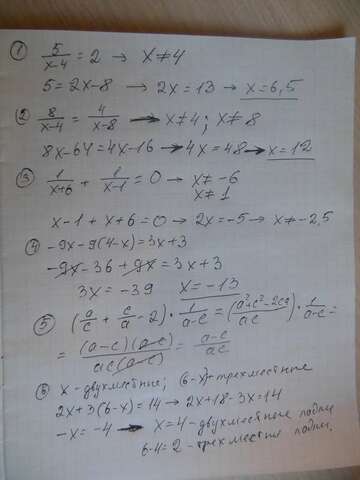 ① 5/(x-4) = 2 → x≠4
5 = 2x-8 → 2x = 13 → x = 6,5
② 8/(x-4) = 4/(x-8) → x≠4; x≠8
8x-64 = 4x-16 → 4x = 48 → x = 12
③ 1/(x+6) + 1/(x-1) = 0 → x≠ -6
x≠ 1
x-1 + x+6 = 0 → 2x = -5 → x≠ -2,5
④ -9x-9(4-x) = 3x+3
-9x-36+9x = 3x+3
3x = -39 x = -13
⑤ (a/c + c/a - 2) · 1/(a-c) = ((a²+c²-2ca)/ac) · 1/(a-c) =
= (a-c)(a-c)/(ac(a-c)) = (a-c)/ac
⑥ x - двухместные; (6-x) трехместные
2x+3(6-x) = 14 → 2x+18-3x = 14
-x = -4 → x = 4 - двухместные лодки
6-4 = 2 - трехместные лодки.